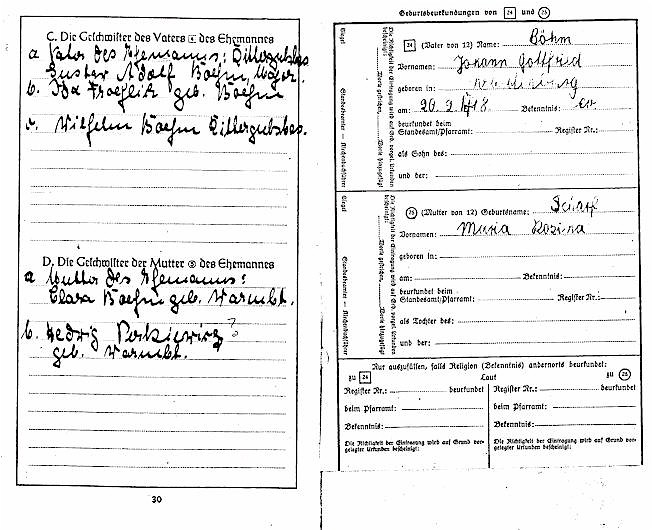 C. Die Geschwister des Vaters 4 des Ehemannes
a Vater des Ehemanns, Rittergutsbes
Gustav Adolf Boehm,
b. Ida Froehlich geb. Boehm
c. Wilhelm Boehm Rittergutsbes.
D. Die Geschwister der Mutter 5 des Ehemannes
a Mutter des Ehemanns:
Clara Boehm geb. Warmbt.
b. Hedwig ?
geb. Warmbt.
30
Geburtsbeurkundungen von 24 und 25
Siegel
Standesbeamter — Kirchenbuchführer
Die Richtigkeit der Eintragung wird auf Grd. vorgel. Urkunden bescheinigt.
24 (Vater von 12) Name: Böhm
Vornamen: Johann Gottfried
geboren in:
am: 20.2. Bekenntnis: Ev
beurkundet beim
Standesamt/Pfarramt: Register Nr.:
als Sohn des:
und der:
Siegel
Standesbeamter — Kirchenbuchführer
Die Richtigkeit der Eintragung wird auf Grd. vorgel. Urkunden bescheinigt.
25 (Mutter von 12) Geburtsname: Scharf
Vornamen: Maria Rosina
geboren in:
am: Bekenntnis:
beurkundet beim
Standesamt/Pfarramt: Register Nr.:
als Tochter des:
und der:
Nur auszufüllen, falls Religion (Bekenntnis) andernorts beurkundet:
zu 24 Laut zu 25
Register Nr.: beurkundet
beim Pfarramt:
Bekenntnis:
Die Richtigkeit der Eintragung wird auf Grund vorgelegter Urkunden bescheinigt:
Register Nr.: beurkundet
beim Pfarramt:
Bekenntnis:
Die Richtigkeit der Eintragung wird auf Grund vorgelegter Urkunden bescheinigt: